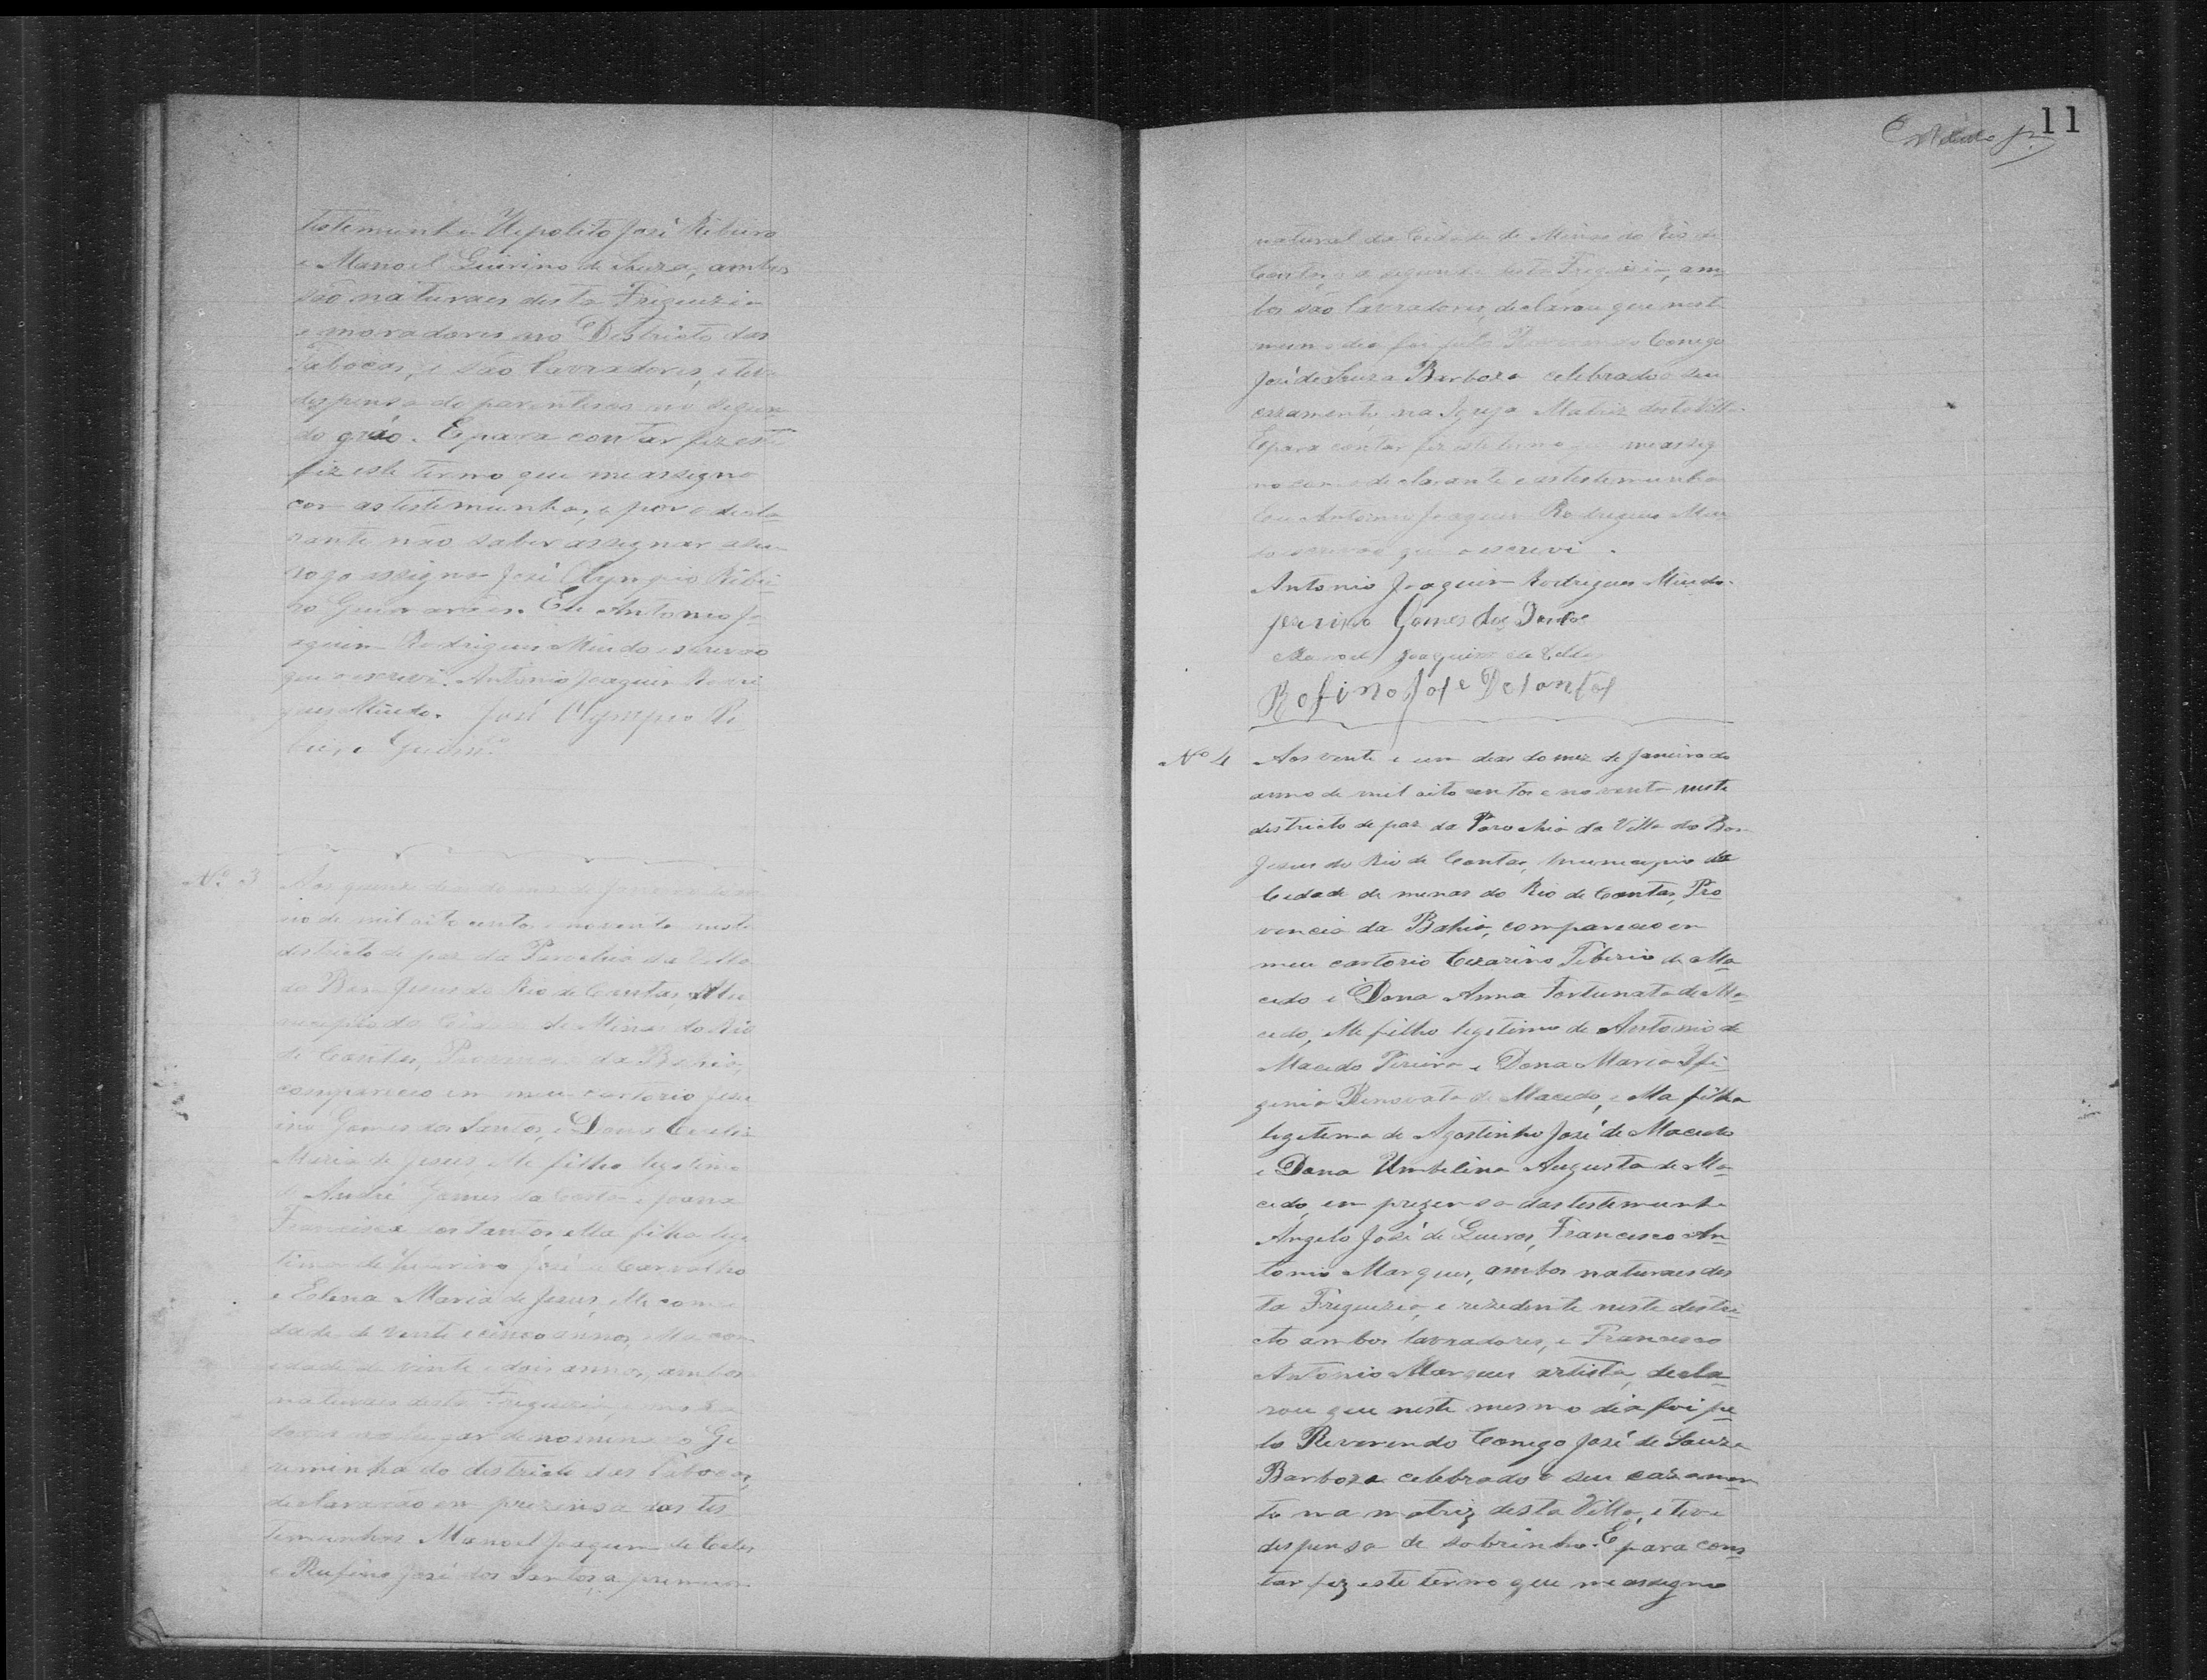 testemunha Hipolito José Ribeiro
e Manoel Guirino de Souza, ambos
são naturaes desta Freguezia
e moradores no Districto das
Tabocas, e são lavradores, e teve
dispensa de parentesco no segun-
do gráo. E para contar fiz este
fiz este termo que me assigno
com as testemunhas, e por o decla-
rante não saber assignar a seu
rogo assigna José Olympio Ribei-
ro Guimarães. Eu Antonio Jo-
aquim Rodrigues Miudo escrivão
que o escrevi. Antonio Joaquim Rodri
gues Miudo. José Olympio Ri
beiro Guimes
Nº 3 Aos quinze dias do mez de Janeiro do an
no de mil oito centos e noventa neste
districto de paz da Parochia da Villa
do Bom Jesus do Rio de Contas, Mu
nicipio da Cidade de Minas do Rio
de Contas, Provincia da Bahia,
compareceo em meu cartorio Jesu
ino Gomes dos Santos, e Dona
Maria de Jesus, elle filho legitimo
de André Gomes da Costa e Joana
Francisca dos Santos, ella filha legi
tima de José de Carvalho
e Elena Maria de Jesus, elle com i
dade de vinte e cinco annos, ella com
idade de vinte e dois annos, ambos
naturaes desta Freguezia, e mora
dores no lugar denominado Ge
reminha do districto das Tabocas,
declararão em prezensa das tes
temunhas Manoel Joaquim de
e Rufino José dos Santos, a primeira
11
natural da Cidade de Minas do Rio de
Contas, e a segunda desta Freguezia, am
bos são lavradores, declarou que neste
mesmo dia foi pelo Reverendo Conego
José de Souza Barboza celebrado o seu
cazamento na Igreja Matriz desta Villa.
E para contar fiz este termo que me assig
no com o declarante e as testemunhas
Eu Antonio Joaquim Rodrigues Miu
do escrivão que o escrevi.
Antonio Joaquim Rodrigues Miudo.
Jesuino Gomes dos Santos
Manoel Joaquim de
Rofino Jose Dosantos
Nº 4 Aos vinte e um dias do mez de Janeiro do
anno de mil oito centos e noventa neste
districto de paz da Parochia da Villa do Bom
Jesus do Rio de Contas, municipio da
Cidade de minas do Rio de Contas, Pro
vincia da Bahia, compareceo em
meu cartorio Cezarino Tiberio de Ma
cedo e Dona Anna Fortunata de Ma
cedo, elle filho legitimo de Antonio de
Macedo Pereira e Dona Maria Ifi
genia Renovata de Macedo, e ella filha
legitema de Agostinho José de Macedo
e Dona Umbelina Augusta de Ma
cedo, em prezensa das testemunha
Angelo José de Queiros, Francisco An
tonio Marques, ambos naturaes des
ta Freguezia, e rezedente neste distri
cto ambos lavradores, e Francisco
Antonio Marques artista, decla-
rou que neste mesmo dia foi pe
lo Reverendo Conego José de Souza
Barboza celebrado o seu cazamen
to na matriz desta Villa, e teve
dispensa de sobrinho. E para cons
tar fiz este termo que me assigno